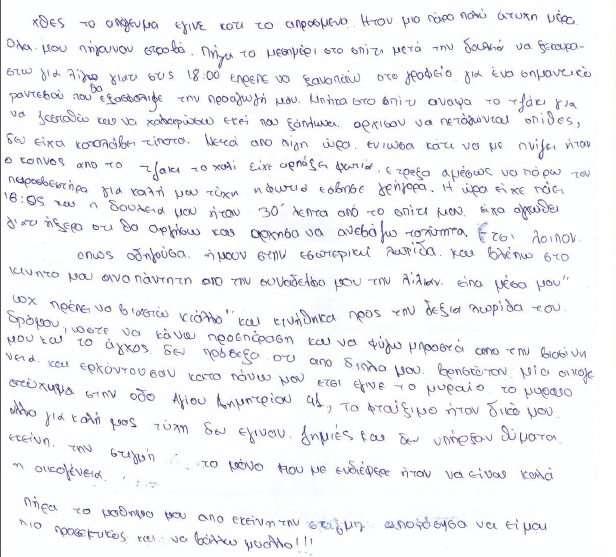 χθες το απόγευμα έγινε κατι το απροσμενο. Ήταν μια πάρα πολύ άτυχη μέρα.
Όλα μου πήγαιναν στραβά. Πήγα το μεσημέρι στο σπίτι μετά την δουλειά να ξεκουρα-
στω για λίγο γιατι στις 18:00 επρεπε να ξαναπάω στο γραφείο για ένα σημαντικό
ραντεβού που θα εξασφάλιζε την προαγωγή μου. Μπήκα στο σπίτι αναψα το τζάκι για
να ζεσταθώ και να χαλαρώσω εκεί που ξάπλωνα. αρχισαν να πετάγονται σπίθες,
δεν είχα καταλάβει τίποτα. Μετά από λίγη ώρα. ενιωσα κάτι να με πνίγει ήταν
ο καπνος απο το τζακι το χαλί είχε αρπάξει φωτιά. ετρεξα αμέσως να πάρω τον
πυροσβεστήρα για καλή μου τύχη η φωτια εσβησε γρήγορα. Η ώρα είχε πάει
18:05 και η δουλεια μου ήταν 30' λεπτα από το σπίτι μου. είχα αγχωθει
γιατι ήξερα οτι θα αργήσω και αρχησα να ανεβάζω ταχύτητα. Ετσι λοιπον.
οπως οδηγούσα. ήμουν στην εσωτερικεί λωρίδα. και βλέπω στο
κινητο μια αναπάντητη απο την συναδελφο μου την Λίλιαν. είπα μέσα μου"
ωχ πρέπει να βιαστώ κιάλλο" και κινήθηκα προς την δεξια λωρίδα του
δρόμου, ωστε να κάνω προσπέραση και να φύγω μπροστά απο την βιασύνη
μου και το άγχος δεν πρόσεξα οτι απο διπλα μου. βρησκόταν μία οικογέ
νεια. και ερχόντουσαν κατα πάνω μου ετσι εγινε το μοιραίο το μοιραιο
ατύχημα στην οδο Αγιου Δημητριου 41, το φταίξιμο ήταν δικό μου.
αλλα για καλή μας τύχη δεν εγιναν. ζημιές και δεν υπήρξαν θύματα.
εκείνη. την στιγμή ... το μόνο που με ενδιέφερε ήταν να είναι καλά
η οικογένεια. ....
πήρα το μαθημα μου απο εκείνη την στιγμη αποφάσησα να είμαι
πιο προσεκτικός και να βάλλω μυαλλο!!!